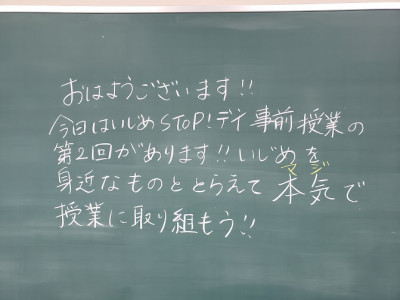 おはようございます!!
今日はいじめSTOP!デイ事前授業の
第2回があります!!いじめを
マジ
身近なものととらえて本気で
授業に取り組もう!!